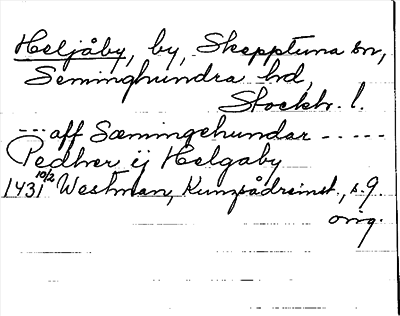 Heljåby, by, Skepptuna sn,
Seminghundra hd,
Stockh. l.
--- aff Sæmingehundar -----
Pedher ij Helgaby
1431 10/2 Westman, Kunsådreinst., s. 9
orig.